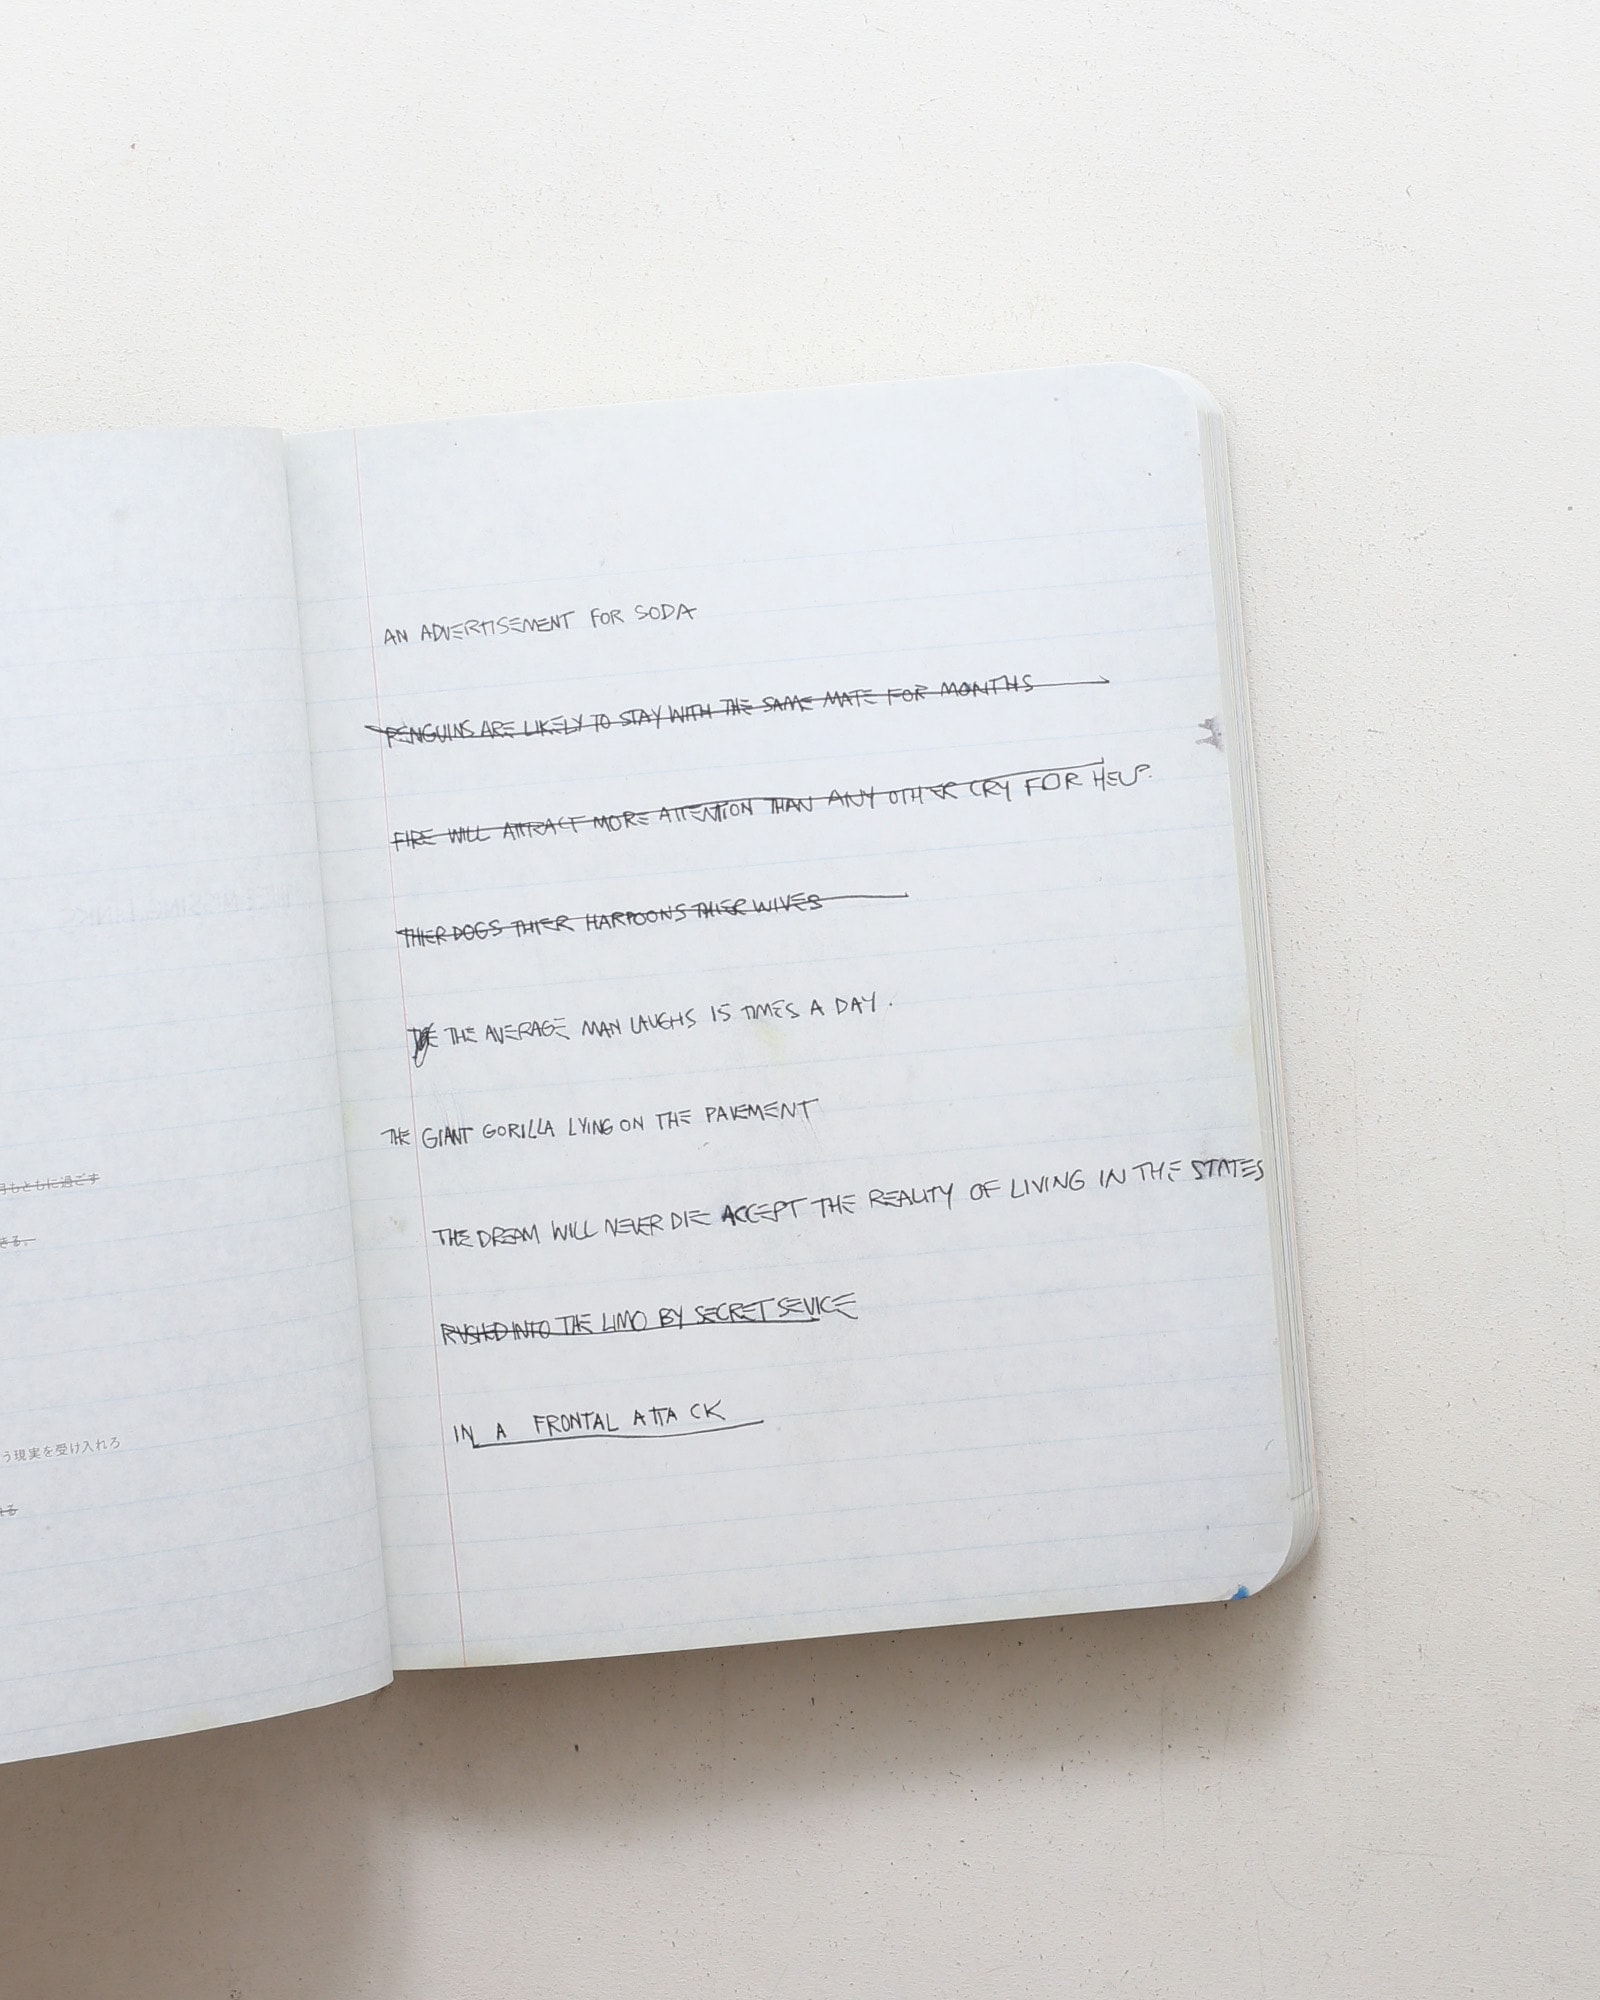 月もともに過ごす
きる。
う現実を受け入れろ
れる
AN ADVERTISEMENT FOR SODA
PENGUINS ARE LIKELY TO STAY WITH THE SAME MATE FOR MONTHS
FIRE WILL ATTRACT MORE ATTENTION THAN ANY OTHER CRY FOR HELP.
THIER DOGS THIER HARPOONS THIER WIVES
THE AVERAGE MAN LAUGHS 15 TIMES A DAY.
THE GIANT GORILLA LYING ON THE PAVEMENT
THE DREAM WILL NEVER DIE ACCEPT THE REALITY OF LIVING IN THE STATES
RUSHED INTO THE LIMO BY SECRET SEVICE
IN A FRONTAL ATTACK